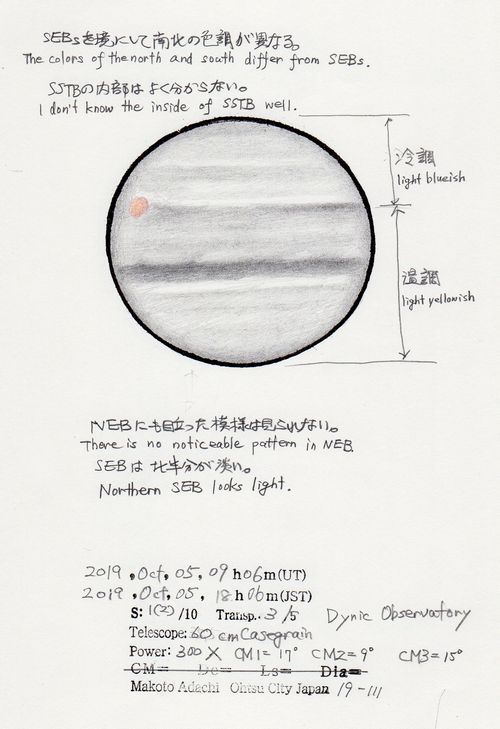 SEBsを境にして南北の色調が異なる。
The colors of the north and south differ from SEBs.
SSTBの内部はよく分からない。
I don't know the inside of SSTB well.
冷調
light blueish
温調
light yellowish
NEBにも目立った模様は見られない。
There is no noticeable pattern in NEB.
SEBは北半分が淡い。
Northern SEB looks light.
2019, Oct, 05, 09h06m(UT)
2019, Oct, 05, 18h06m(JST)
S: 1(2)/10 Transp.: 3/5 Dynic Observatory
Telescope: 60cm Casegrain
Power: 300X CM1=17° CM2=9° CM3=15°
CM= De= Ls= Dia=
Makoto Adachi Ohtsu City Japan 19-111